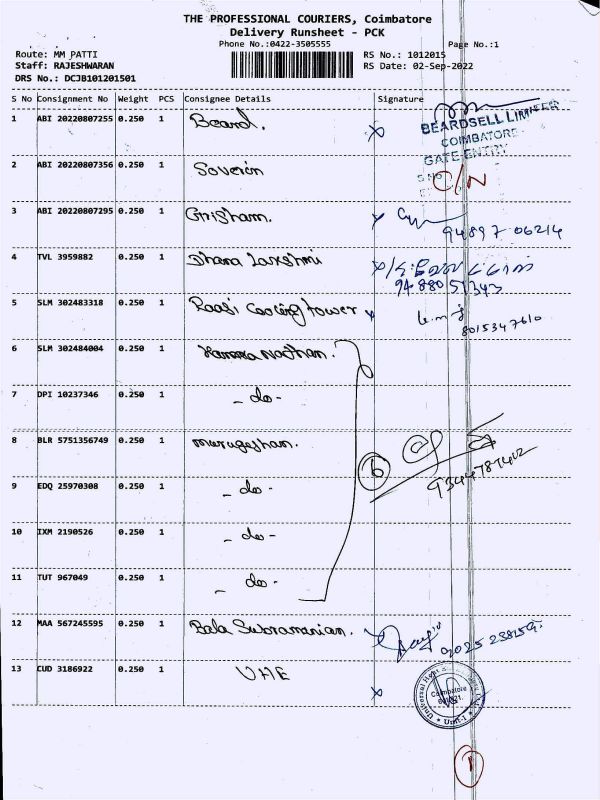 THE PROFESSIONAL COURIERS, Coimbatore
Delivery Runsheet - PCK
Phone No.:0422-3505555
Page No.:1
Route: MM PATTI
RS No.: 1012015
Staff: RAJESHWARAN
RS Date: 02-Sep-2022
DRS No.: DCJB101201501
S No Consignment No Weight PCS Consignee Details Signature
1 ABI 20220807255 0.250 1 Beard.
BEARDSELL LIMITED
COIMBATORE
GATE ENTRY
2 ABI 20220807356 0.250 1 C/N
3 ABI 20220807295 0.250 1 Grisham. 94897 06214
4 TVL 3959882 0.250 1 Dhana Lakshmi
94880 51343
5 SLM 302483318 0.250 1 Raasi cooling tower 8015347610
6 SLM 302484004 0.250 1
7 DPI 10237346 0.250 1 - do -
8 BLR 5751356749 0.250 1 murugeshan.
6
9 EDQ 25970308 0.250 1 - do -
10 IXM 2190526 0.250 1 - do -
11 TUT 967049 0.250 1 - do -
12 MAA 567245595 0.250 1 Bala Subramanian.
13 CUD 3186922 0.250 1 VHE
Coimbatore
Unit-1
1